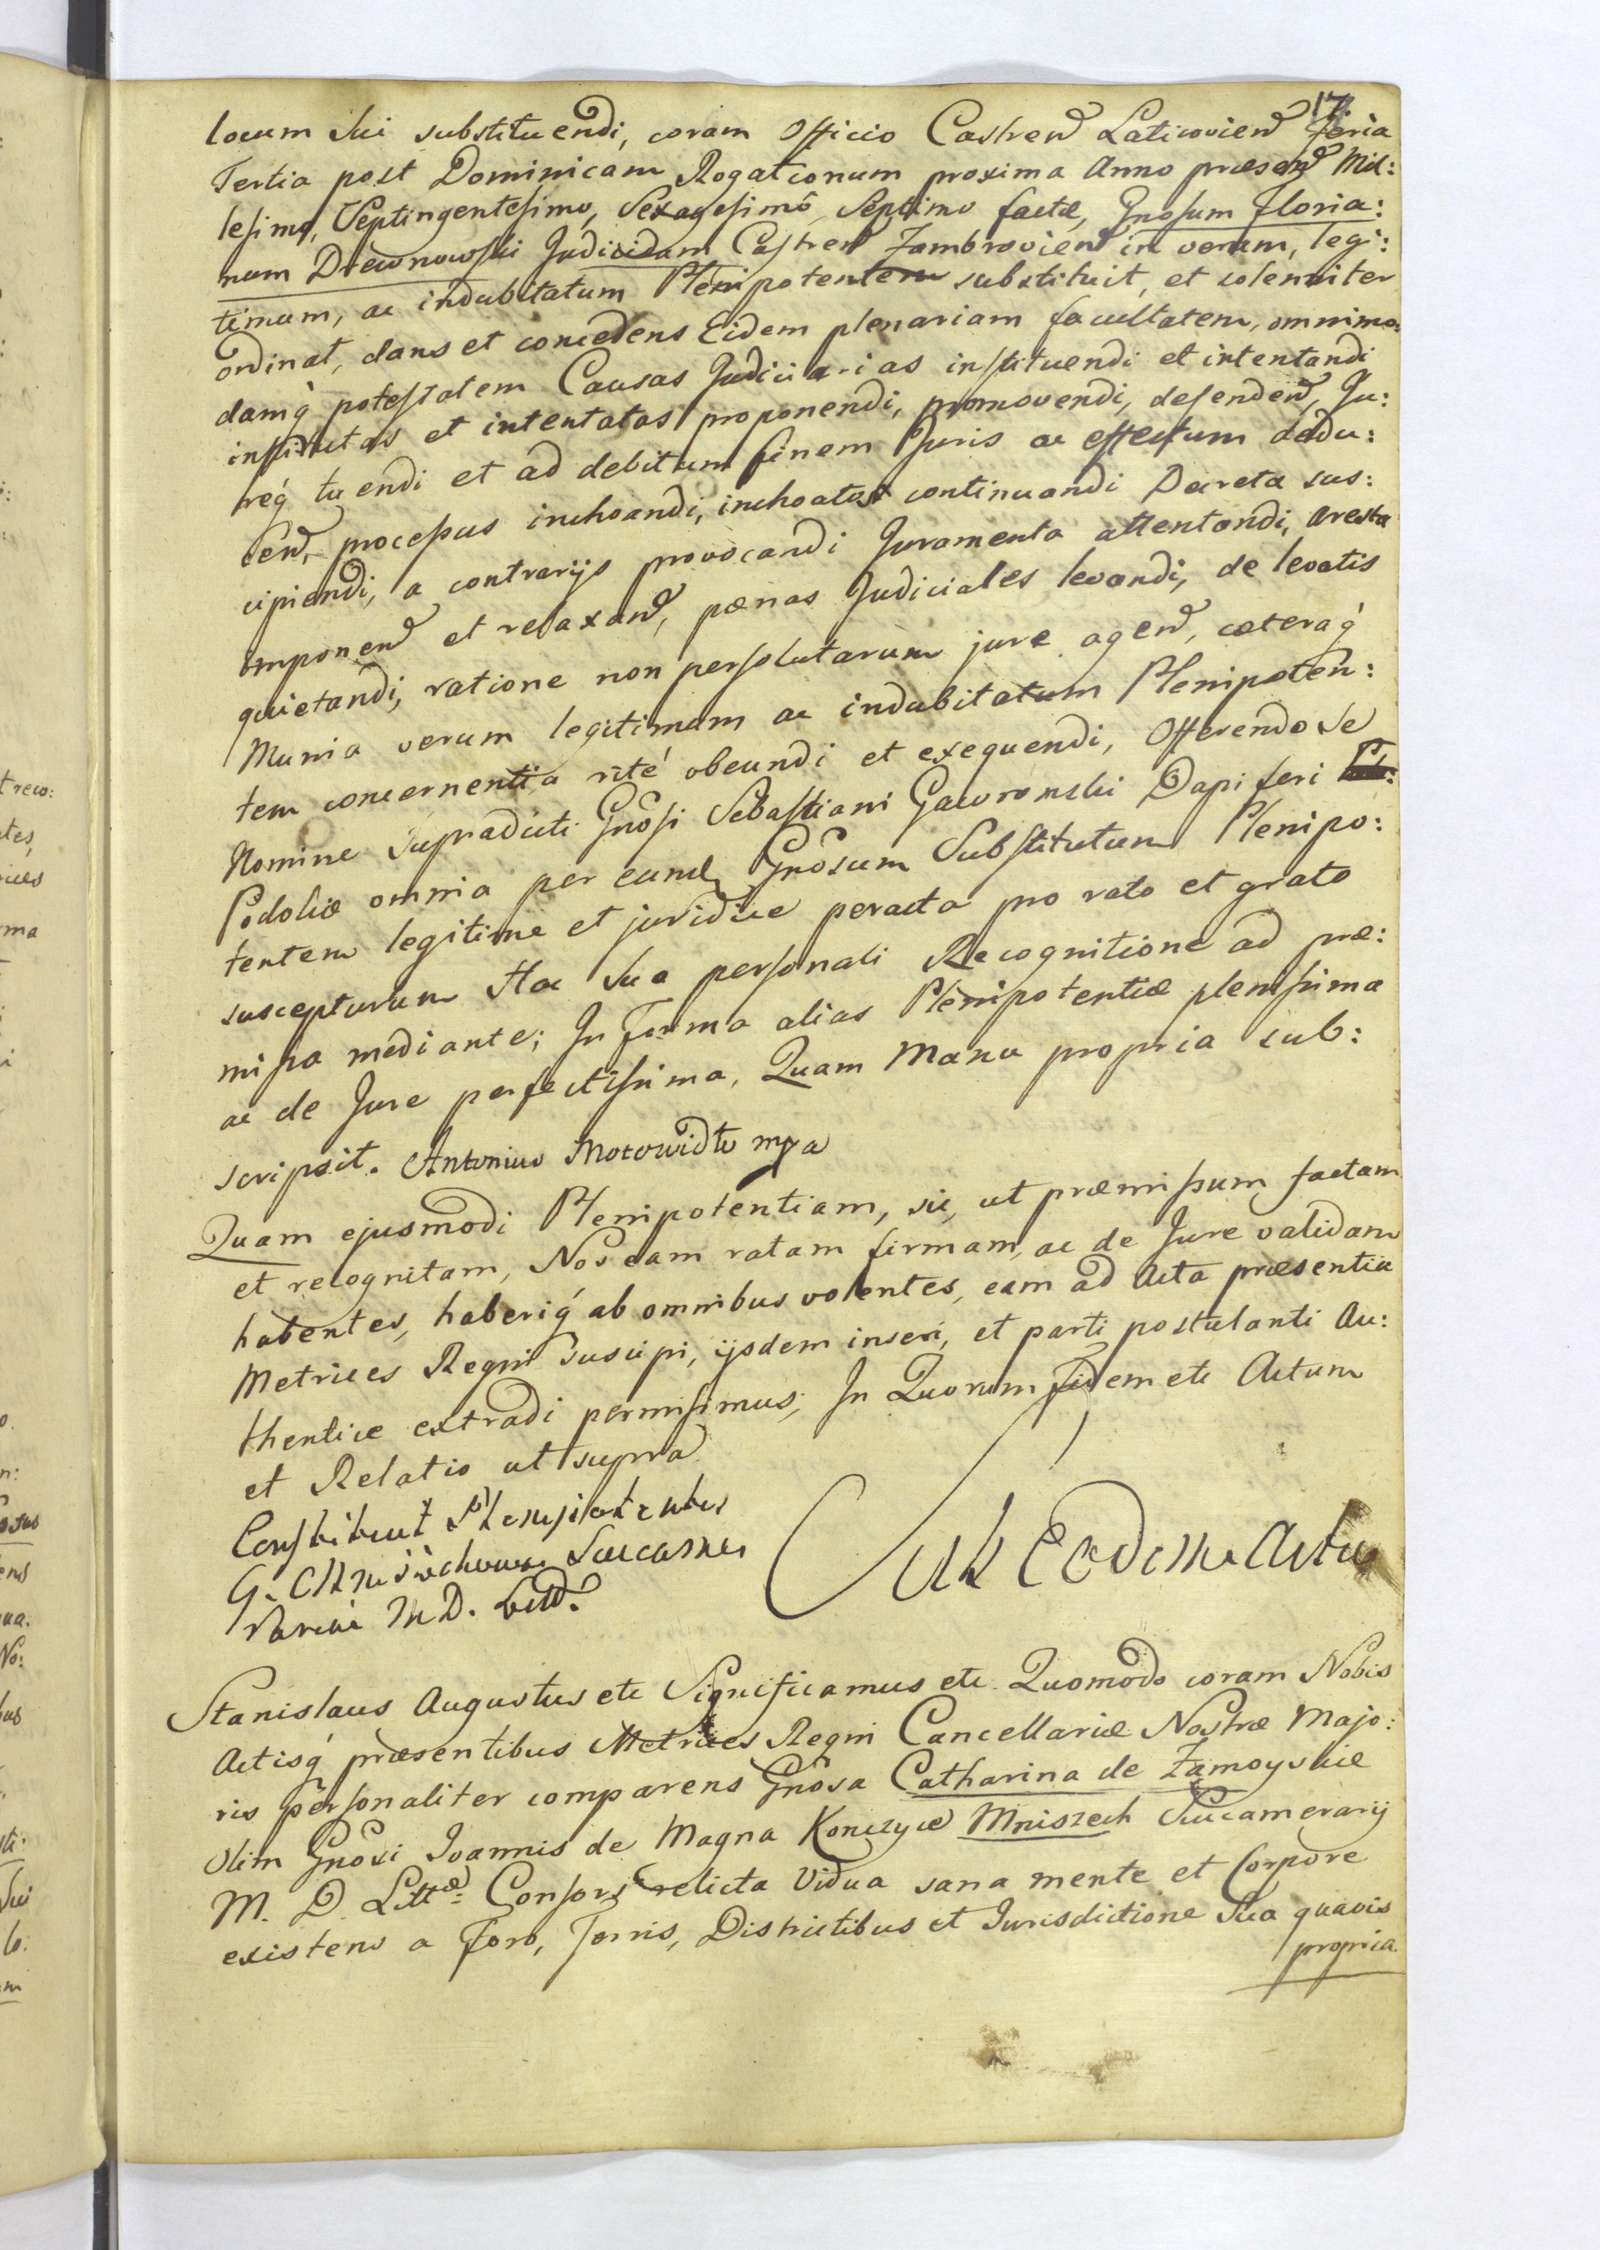 17
locum Sui substituendi, coram Officio Castren Laticovien Feria
Tertia post Dominicam Rogationum proxima Anno præsen Mil:
lesimo, Septingentesimo, Sexagesimô Septimo factæ, Gnosum Floria:
num Drewnowski Judicidam Castren Zambrovien in verum, legi:
timum, ac indubitatum Plenipotentem substituit, et solenniter
ordinat, dans et concedens Eidem plenariam facultatem, omnimo:
damq́ potestatem Causas Judiciarias instituendi et intentandi
institutas et intentatas proponendi, promovendi, defenden, Ju:
req́ tuendi et ad debitum finem Juris ac effectum dedu:
cen, processus inchoandi, inchoatos continuandi Decreta sus:
cipiendi, a contrarijs provocandi Juramenta attentandi, Aresta
imponen et relaxan, pœnas Judiciales levandi, de levatis
quietandi, ratione non persolutarum jure agen, cæteraq́
Munia verum legitimum ac indubitatum Plenipoten:
tem concernentia rité obeundi et exequendi, Offerendo Se
Nomine supradicti Gnôsi Sebastiani Gawronski Dapiferi
Podoliæ omnia per eund Gnôsum Substitutum Plenipo:
tentem legitime et juridice peracta pro rato et grato
suscepturum Hac Sua personali Recognitione ad præ:
missa mediante; In Forma alias Plenipotentiæ plenissima
ac de Jure perfectissima, Quam Manu propria sub:
scripsit. Antonius Motowidło mpa
Quam ejusmodi Plenipotentiam, sic, ut præmissum factam
et recognitam, Nos eam ratam firmam, ac de Jure validam
habentes, haberiq́ ab omnibus volentes, eam ad Acta præsentia
Metrices Regni suscipi, ijsdem inseri, et parti postulanti Au:
thentice extradi permisimus; In Quorum Fidem etc Actum
et Relatio ut supra
Constituit Plenipotentes
G. Mniszchowa Succame
raria M D. Litt.
Sub Eodem Actu
Stanislaus Augustus etc Significamus etc. Quomodo coram Nobis
Actisq́ præsentibus Metrices Regni Cancellariæ Nostræ Majo:
ris personaliter comparens Gnôsa Catharina de Zamoyskie
Olim Gnôsi Joannis de Magna Konczyce Mniszech Succamerarij
M. D. Litt. Consors relicta Vidua sana mente et Corpore
existens a Foro, Terris, Districtibus et Jurisdictione Sua quavis
propria